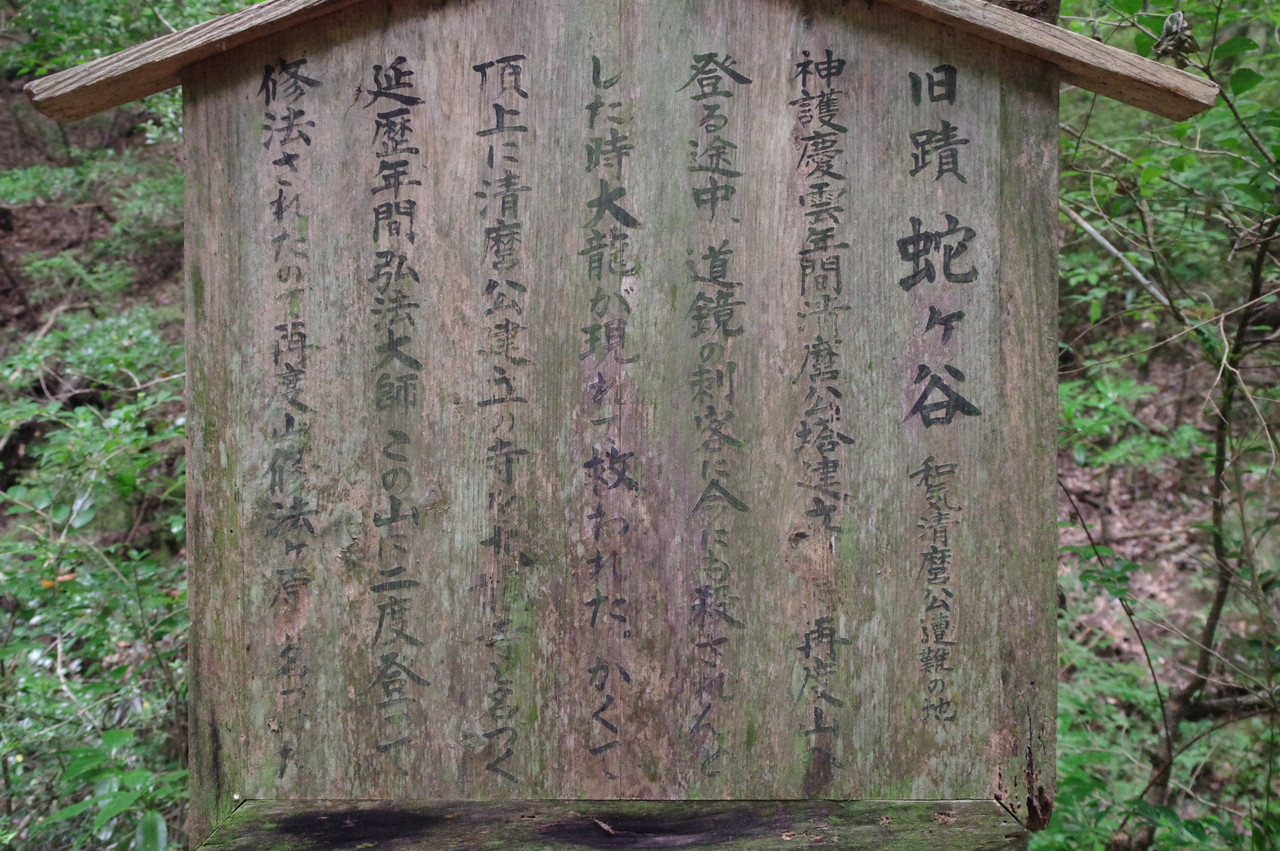 旧蹟 蛇ヶ谷 和気清麿公遭難の地
神護慶雲年間清麿公塔建立 再度山へ
登る途中、道鏡の刺客に今にも殺されんと
した時大龍が現れて救われた。かくて
頂上に清麿公建立の寺 と名づく
延歴年間弘法大師 この山に二度登って
修法されたので再度山修法ヶ原 名づけた